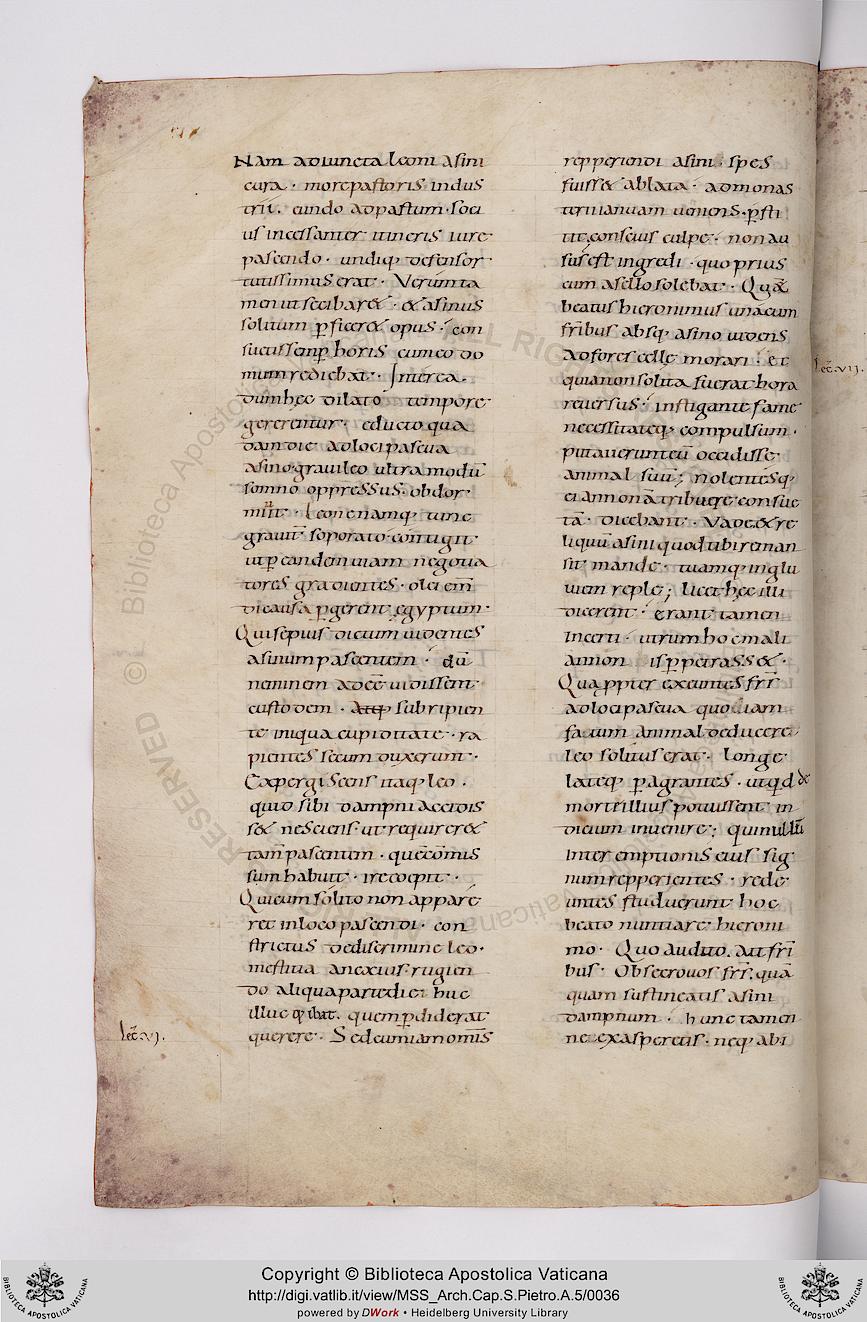 Nam adiuncta leoni asini
cura · more pastoris indus
trii. eundo ad pastum · soci
us incessanter itineris iure
pascendo · undiq; defensor
tutissimus erat · Verum ta
men ut se cibar& · & asinus
solitum p̱ficer& opus · con
sue tis semp̱ horis cum eo do
mum rediebat · Interea ·
dum hec dilato tempore
gererentur · educto qua
dam die ad loci pascua
asino · gravi leo ultra modū
somno oppressus · obdor
miit · Leone namq; tunc
graviť soporato · contigit
ut p̱ eandem viam negotia
tores gradientes · olei em̄
di causa p̱gerent egyptum ·
Qui sepius dictum videntes
asinum pascentem · dū
neminem adeē vidissent
custodem · subripien
te iniqua cupiditate · ra
pientes secum duxerunt ·
Expergiscens itaq; leo ·
quid sibi dampni accidis
s& nesciens · ut requirer&
tam̄ pascentem · quē com̄is
sum habuit · ire coepit ·
Qui cum solito non appare
ret in loco pascendi · con
strictus de discrimine leo ·
mestitia anexius · rugien
do aliqua parte diei huc
illuc q; ibat. quem p̱diderat
querere · Sed cum iam omīs
lec̄. vj.
repperiendi asini · spes
fuiss& ablata · ad monas
terii ianuam veniens · p̱sti
tit; conscius culpe · non au
sus est ingredi · quo prius
cum asello solebat · Quē
beatus hieronimus una cum
fr̄ibus absq; asino videns
ad fores celle morari · et
quia non solita fuerat hora
reversus · instigante fame
necessitateq; compulsum ·
putaverunt eū occidisse
animal suū; nolentesq;
ei annonā tribuere consue
tā · dicebant · Vade & re
liquū asini quod tibi reman
sit mande · tuamq; inglu
viem reple; licet hec illi
dicerent · erant tamen
incerti · utrum hoc mali
an non is p̱petrass& ·
Quap̱pter exeuntes fr̄s
ad loci pascua quo iam
fatum animal deducere
leo solitus erat · longe
lateq; p̱agrantes · ut qd̄ de
morte illius potuissent in
dicium invenire; qui nullū
interemptionis eius sig
num repperientes · rede
untes studuerunt hoc
beato nuntiare hieroni
mo · Quo audito. Ait fr̄i
bus · Obsecro vos fr̄s. quā
quam sustineatis asini
dampnum · hunc tamen
ne exasperetis · neq; abi
lec̄. vij.
Copyright © Biblioteca Apostolica Vaticana
http://digi.vatlib.it/view/MSS_Arch.Cap.S.Pietro.A.5/0036
powered by DWork • Heidelberg University Library
BIBLIOTECA APOSTOLICA VATICANA
BIBLIOTECA APOSTOLICA VATICANA